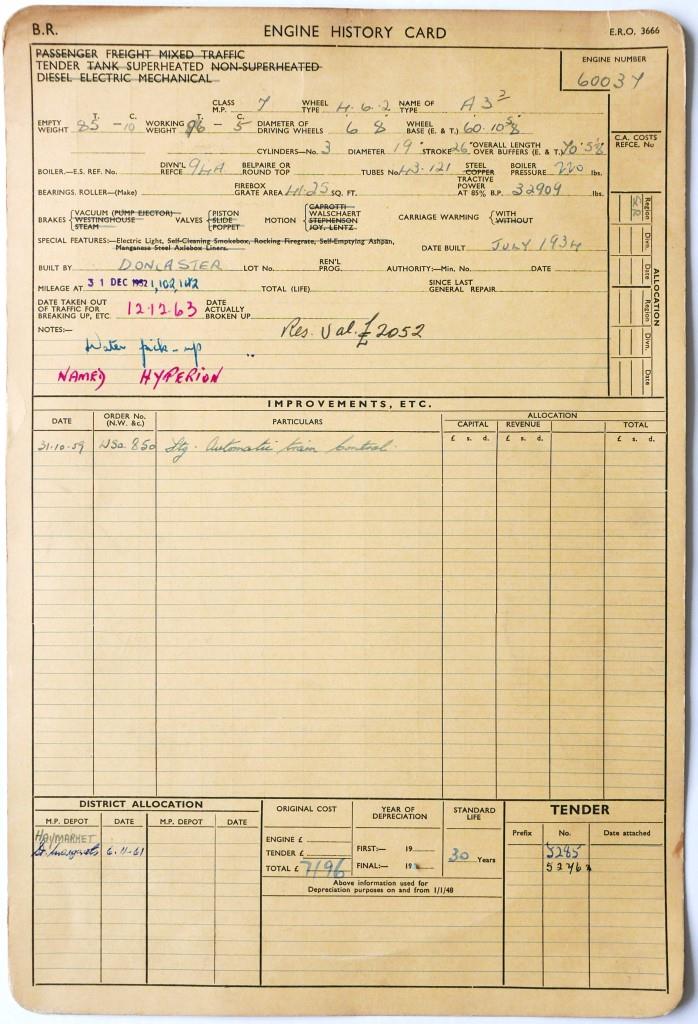 B.R. ENGINE HISTORY CARD E.R.O. 3666
PASSENGER FREIGHT MIXED TRAFFIC
TENDER TANK SUPERHEATED NON-SUPERHEATED
DIESEL ELECTRIC MECHANICAL
ENGINE NUMBER
60037
CLASS M.P. 7 WHEEL TYPE 4.6.2 NAME OF TYPE A3²
EMPTY WEIGHT T. C. 85-10 WORKING WEIGHT T. C. 96-5 DIAMETER OF DRIVING WHEELS 6 8 WHEEL BASE (E. & T.) 60.10⅝
CYLINDERS—No. 3 DIAMETER 19" STROKE 26" OVERALL LENGTH OVER BUFFERS (E. & T.) 70.5⅛
C.A. COSTS REFCE. No
BOILER.—E.S. REF. No. DIVN'L REFCE 94A BELPAIRE OR ROUND TOP TUBES No 43.121 STEEL COPPER BOILER PRESSURE 220 lbs.
BEARINGS. ROLLER—(Make) FIREBOX GRATE AREA 41.25 SQ. FT. TRACTIVE POWER AT 85% B.P. 32909 lbs.
BRAKES VACUUM (PUMP EJECTOR) WESTINGHOUSE STEAM VALVES PISTON SLIDE POPPET MOTION CAPROTTI WALSCHAERT STEPHENSON JOY, LENTZ CARRIAGE WARMING WITH WITHOUT
SPECIAL FEATURES:—Electric Light, Self-Cleaning Smokebox, Rocking Firegrate, Self-Emptying Ashpan,
Manganese Steel Axlebox Liners.
DATE BUILT JULY 1934
BUILT BY DONCASTER LOT No. REN'L PROG. AUTHORITY:—Min. No. DATE
MILEAGE AT 31 DEC 1952 1,102,142 TOTAL (LIFE) SINCE LAST GENERAL REPAIR
DATE TAKEN OUT OF TRAFFIC FOR BREAKING UP, ETC. 12.12.63 DATE ACTUALLY BROKEN UP
NOTES:— Res. Val. £2052
Water pick-up "
NAMED HYPERION
ALLOCATION
Region Divn. Date Region Divn. Date
IMPROVEMENTS, ETC.
DATE ORDER No. (N.W. &c.) PARTICULARS ALLOCATION
CAPITAL REVENUE TOTAL
£ s. d. £ s. d. £ s. d.
31.10.59 WSo. 850 Ftg. Automatic train Control.
DISTRICT ALLOCATION
M.P. DEPOT DATE M.P. DEPOT DATE
HAYMARKET
St. Margarets 6.11.61
ORIGINAL COST YEAR OF DEPRECIATION STANDARD LIFE
ENGINE £
TENDER £
TOTAL £ 7196
FIRST:— 19
FINAL:— 19
30 Years
Above information used for
Depreciation purposes on and from 1/1/48
TENDER
Prefix No. Date attached
5285